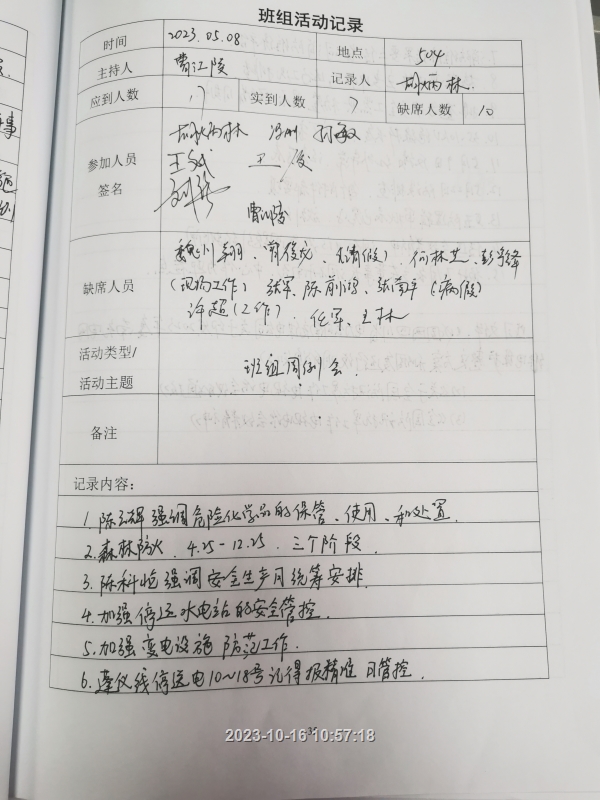 班组活动记录
时间 2023.05.08 地点 504
主持人 曹江陵 记录人 胡炳林
应到人数 17 实到人数 7 缺席人数 10
胡炳林
参加人员 王斌 王俊
签名
曹江陵
(请假)、何林芝、彭
缺席人员 (现场工作) 张军、陈前鸿、张 (病假)
许超(工作)、任军、王林
活动类型/
活动主题 班组周例会
备注
记录内容:
1. 强调危险化学品的保管、使用、和处置.
2. 森林防火. 4.25-12.25. 三个阶段.
3. 陈科 强调安全生产月统筹安排.
4. 加强停运水电站的安全管控.
5. 加强变电设施防范工作.
6. 线停送电10~18号记得报精准日管控.
2023-10-16 10:57:18